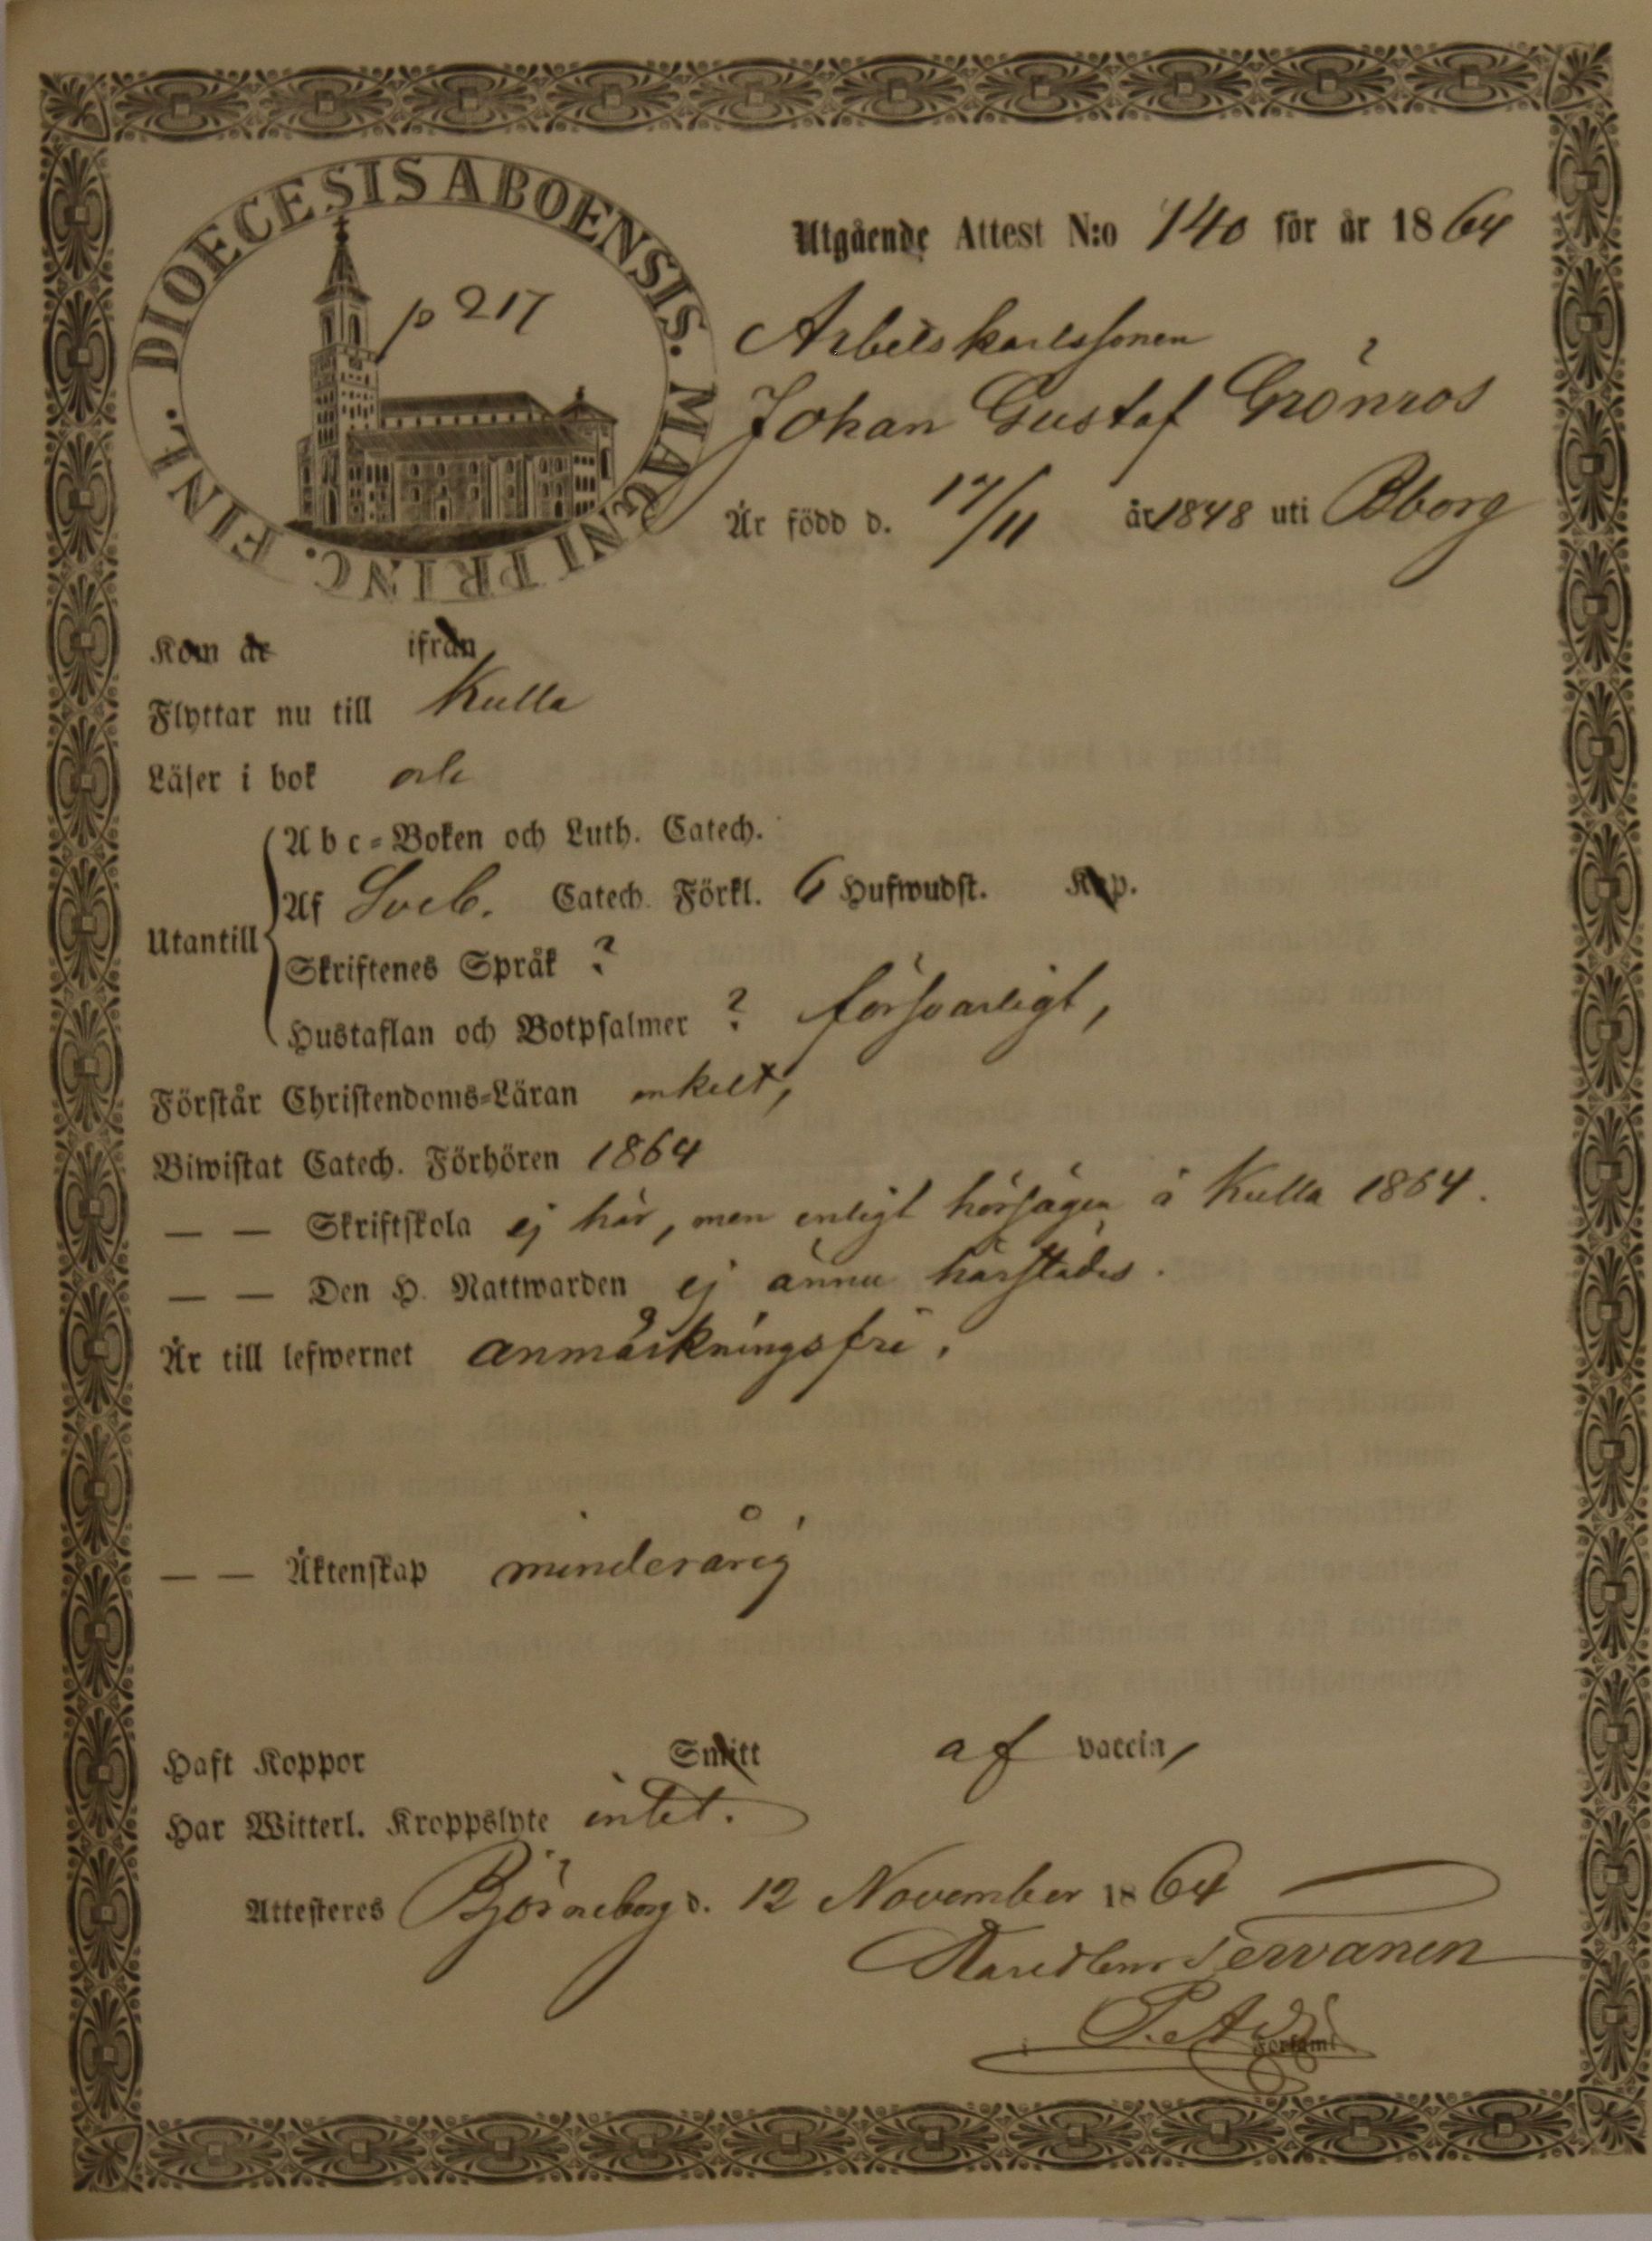 DIOECESIS ABOENSIS. MAGNI PRINC. FINL.
p 217
Utgående Attest N:o 140 för år 1864
Arbetskarlssonen
Johan Gustaf Grönros
Är född d. 17/11 år 1848 uti Bborg
Kom år ifrån
Flyttar nu till Kulla
Läser i bok
Utantill
Abc-Boken och Luth. Catech.
Af Sveb. Catech. Förkl. 6 Hufwudst. Kap.
Skriftenes Språk ?
Hustaflan och Botpsalmer ? försvarligt,
Förstår Christendoms-Läran enkelt,
Biwistat Catech. Förhören 1864
— — Skriftskola ej här, men enligt hörsägen å Kulla 1864.
— — Den H. Nattwarden ej ännu härstädes.
Är till lefwernet anmärkningsfri.
— — Äktenskap minderårig
Haft Koppor Smitt af vaccin,
Har Witterl. Kroppslyte intet.
Attesteres Björneborg d. 12 November 1864
Tervanen
Förs�aml